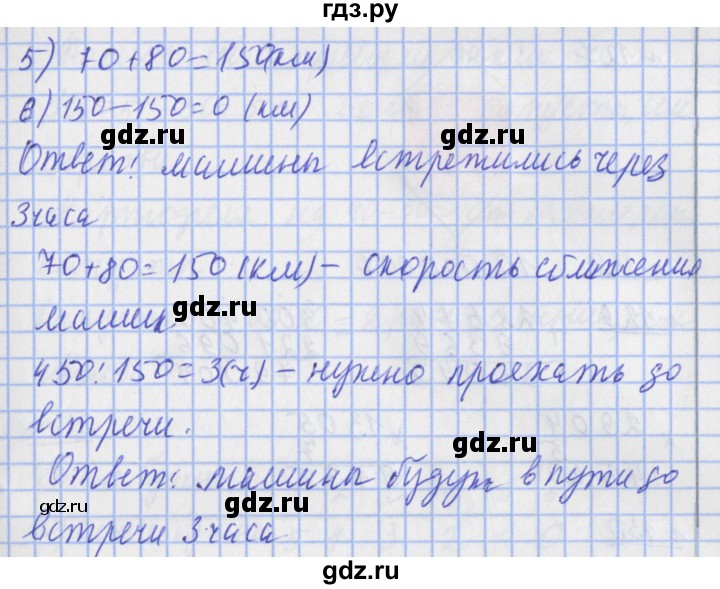 гдз.ру
5) 70+80=150(км)
6) 150-150=0 (км)
gdz.ru
Ответ: машины встретились через
gdz.ru
3 часа
70+80=150(км) - скорость сближения
машин.
gdz.ru
450:150=3(ч) - нужно проехать до
встречи.
gdz.ru
Ответ: машины будут в пути до
gdz.ru
gdz.ru
встречи 3 часа
gdz.ru